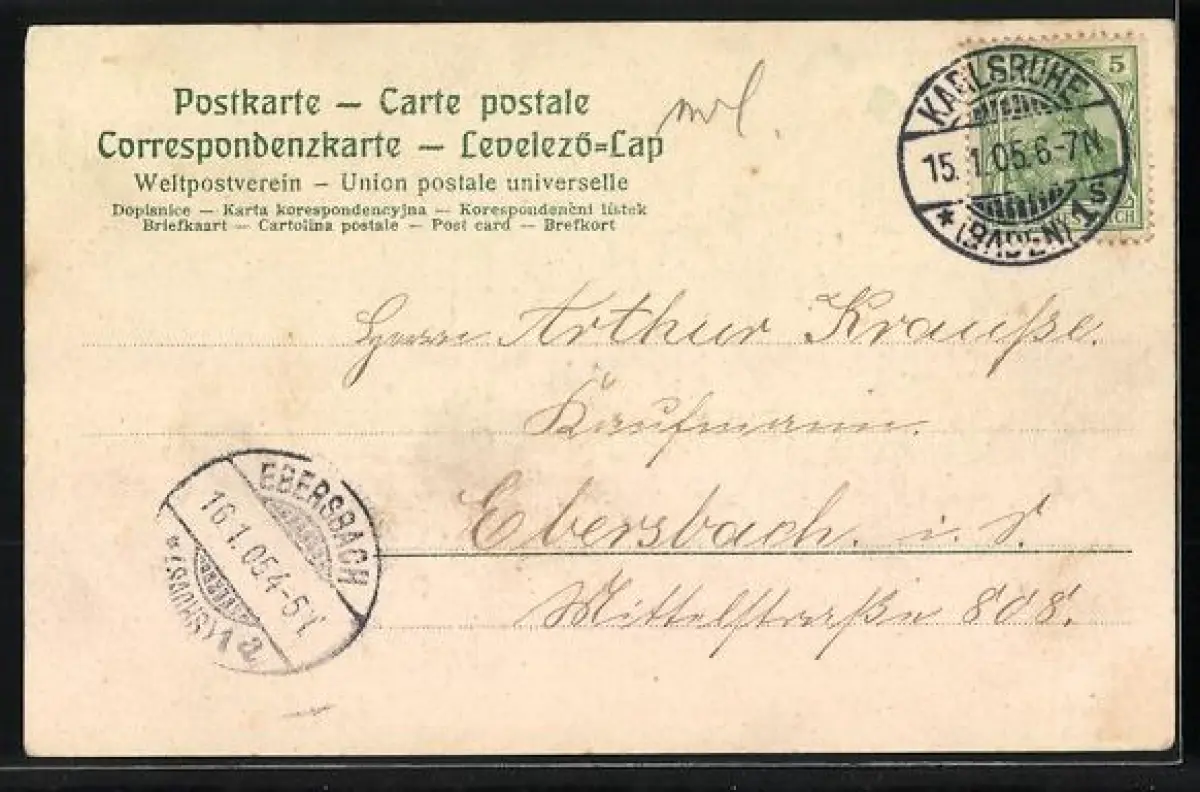 Postkarte – Carte postale
Correspondenzkarte – Levelező=Lap
Weltpostverein – Union postale universelle
Dopisnice – Karta korespondencyjna – Korespondenčni listek
Briefkaart – Cartolina postale – Post card – Brefkort
5
KARLSRUHE
15.1.05.6-7N
* (BADEN) 1s
Herrn Arthur Krauße.
Kaufmann.
Ebersbach. i. S.
Mittelstraße 808.
EBERSBACH
16.1.05.4-5V.
*(SACHS.)1 a